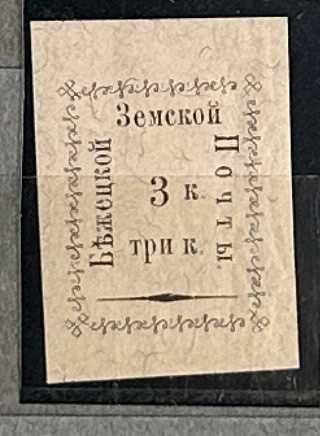 Земской
Бѣжецкой
Почты.
3 к.
три к.